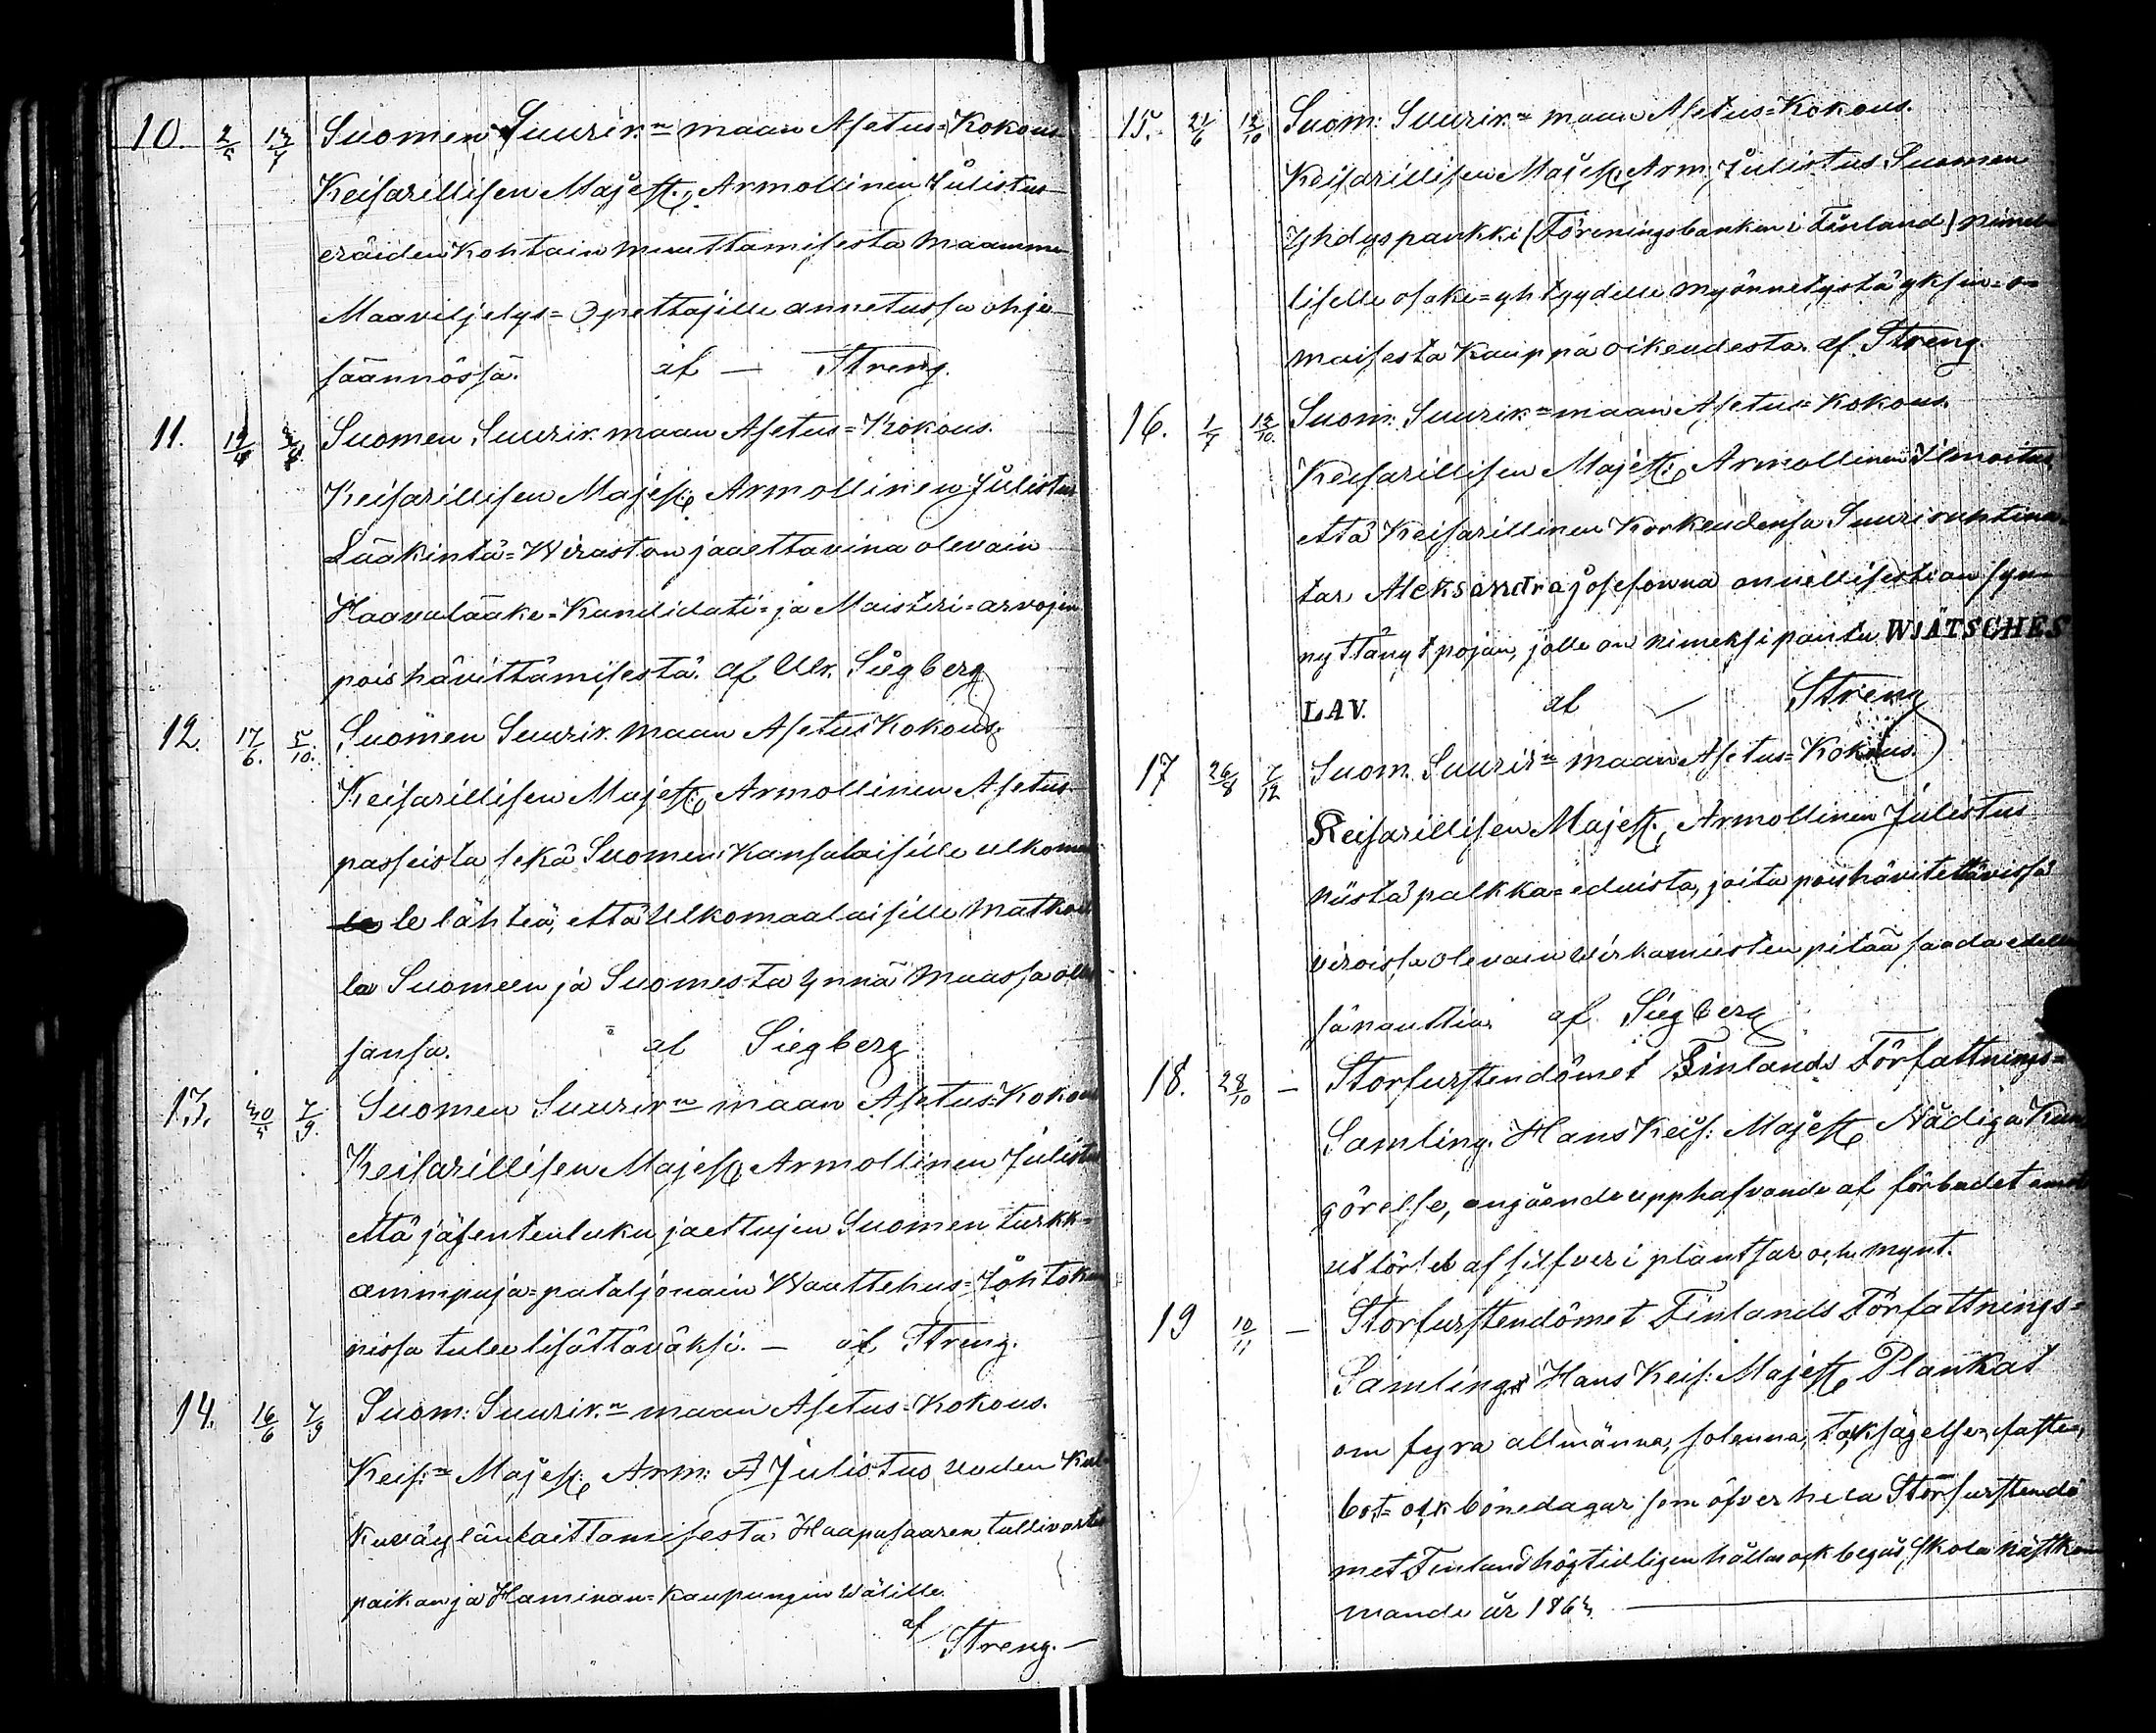 10. 2/5 13/7 Suomen Suurir:n maan Asetus=Kokous
Keisarillisen Majest:, Armollinen Julistus
eräiden kohtain muuttamisesta Maamme
Maaviljelys=Opettajille annetussa ohje-
säännössä. af — Streng.
11. 12/4 Suomen Suurir. maan Asetus=Kokous.
Keisarillisen Majest: Armollinen Julistus
Lääkintä=Wiraston jaaettavina olevain
Haavalääke=Kandidati= ja Maisteri=arvojen
poishävittämisestä. af Ulr. Siegberg
12. 17/6. 5/10. Suomen Suurir. maan Asetus Kokous.
Keisarillisen Majest: Armollinen Asetus
passeista sekä Suomen Kansalaisille ulkomaa
le lähteä, että Ulkomaalaisille Matkou
la Suomeen ja Suomesta ynnä Maassa olles
sansa. af Siegberg
13. 30/5 7/9. Suomen Suurir:n maan Asetus=Kokous
Keisarillisen Majest: Armollinen Julistus
että jäsentenluku jaettujen Suomen tarkk=
ammpuja=pataljonain Waattehus=Johtokun
nissa tulee lisättäväksi. — af Streng.
14. 16/6 7/9 Suom: Suurir.n maan Asetus=Kokous.
Keis:n Majest: Arm: Julistus uuden Kul-
kuväylän laittamisesta Haapasaaren tullivartia
paikan ja Haminan=kaupungin Wälille.
af Streng. —
15. 21/6 12/10 Suom: Suurir:n maan Asetus=Kokous.
Keisarillisen Majest: Arm: Julistus Suomen
Yhdyspankki (Föreningsbanken i Finland) nimel-
liselle osake=yhtyydelle myönnetystä yksin=o=
maisesta Kauppa oikeudesta. af Streng.
16. 1/7 13/10. Suom: Suurir:n maan Asetus=Kokous.
Keisarillisen Majest: Armollinen Ilmoitus,
että Keisarillinen Korkeudensa Suuriruhtina-
tar Aleksandra Josefowna onnellisestian syn-
nyttänyt pojan, jolle on nimeksi pantu WJÄTSCHES
LAV. af — Streng
17 26/8 7/12 Suom. Suurir:n maan Asetus=Kokous.
Keisarillisen Majest:, Armollinen Julistus
niistä palkka=eduista, joita poishävitettävissä
viroissa olevain Wirkamiesten pitää saada edelleen
sä nauttia. af Siegberg
18. 28/10 — Storfurstendömet Finlands Författnings=
Samling. Hans Keis: Majest: Nådiga Kun
görelse, angående upphäfvande af förbudet emot
utförsel af silfver i plantsar och mynt.
19 10/11 — Storfurstendömet Finlands Författnings=
Samling Hans Keis: Majest: Plankat
om fyra allmänna, solenna, taksägelse, faste,
bot= ock bönedagar som öfver hela Storfurstendö
met Finland högtidligen hållas ock begås skola nästkom
mande år 1863.